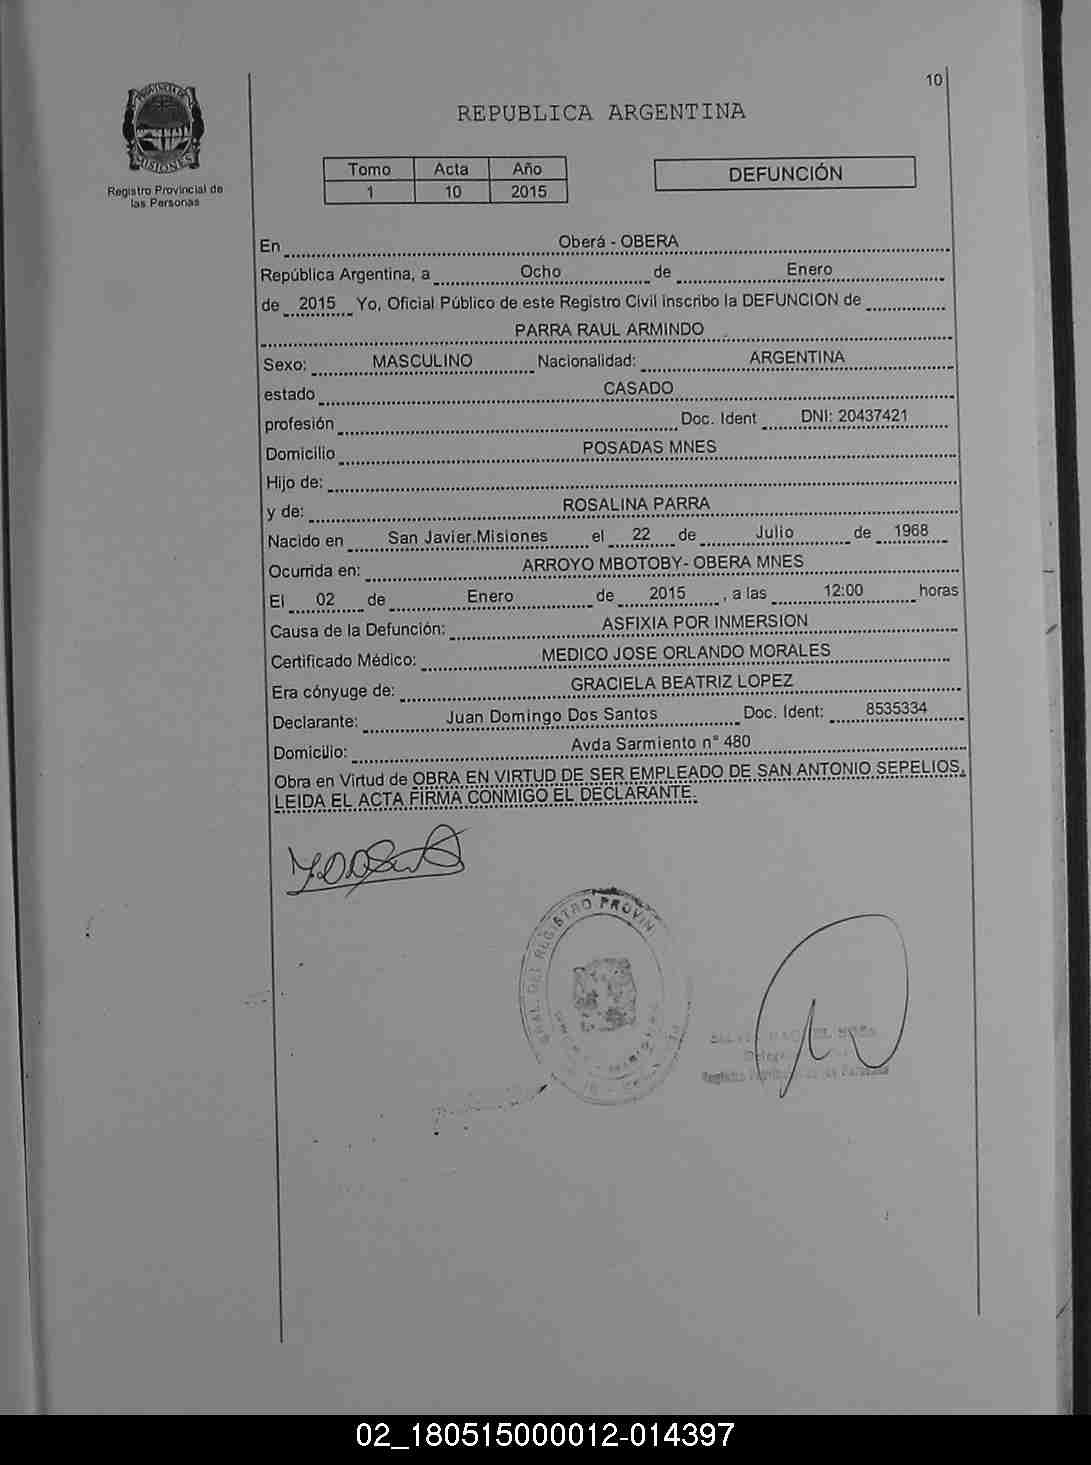 10
PROVINCIA DE
MISIONES
Registro Provincial de
las Personas
REPUBLICA ARGENTINA
Tomo Acta Año
1 10 2015
DEFUNCIÓN
En Oberá - OBERA
República Argentina, a Ocho de Enero
de 2015 Yo, Oficial Público de este Registro Civil inscribo la DEFUNCION de
PARRA RAUL ARMINDO
Sexo: MASCULINO Nacionalidad: ARGENTINA
estado CASADO
profesión Doc. Ident DNI: 20437421
Domicilio POSADAS MNES
Hijo de:
y de: ROSALINA PARRA
Nacido en San Javier.Misiones el 22 de Julio de 1968
Ocurrida en: ARROYO MBOTOBY- OBERA MNES
El 02 de Enero de 2015 , a las 12:00 horas
Causa de la Defunción: ASFIXIA POR INMERSION
Certificado Médico: MEDICO JOSE ORLANDO MORALES
Era cónyuge de: GRACIELA BEATRIZ LOPEZ
Declarante: Juan Domingo Dos Santos Doc. Ident: 8535334
Domicilio: Avda Sarmiento n° 480
Obra en Virtud de OBRA EN VIRTUD DE SER EMPLEADO DE SAN ANTONIO SEPELIOS,
LEIDA EL ACTA FIRMA CONMIGO EL DECLARANTE.
DEL REGISTRO PROVIN
02_180515000012-014397